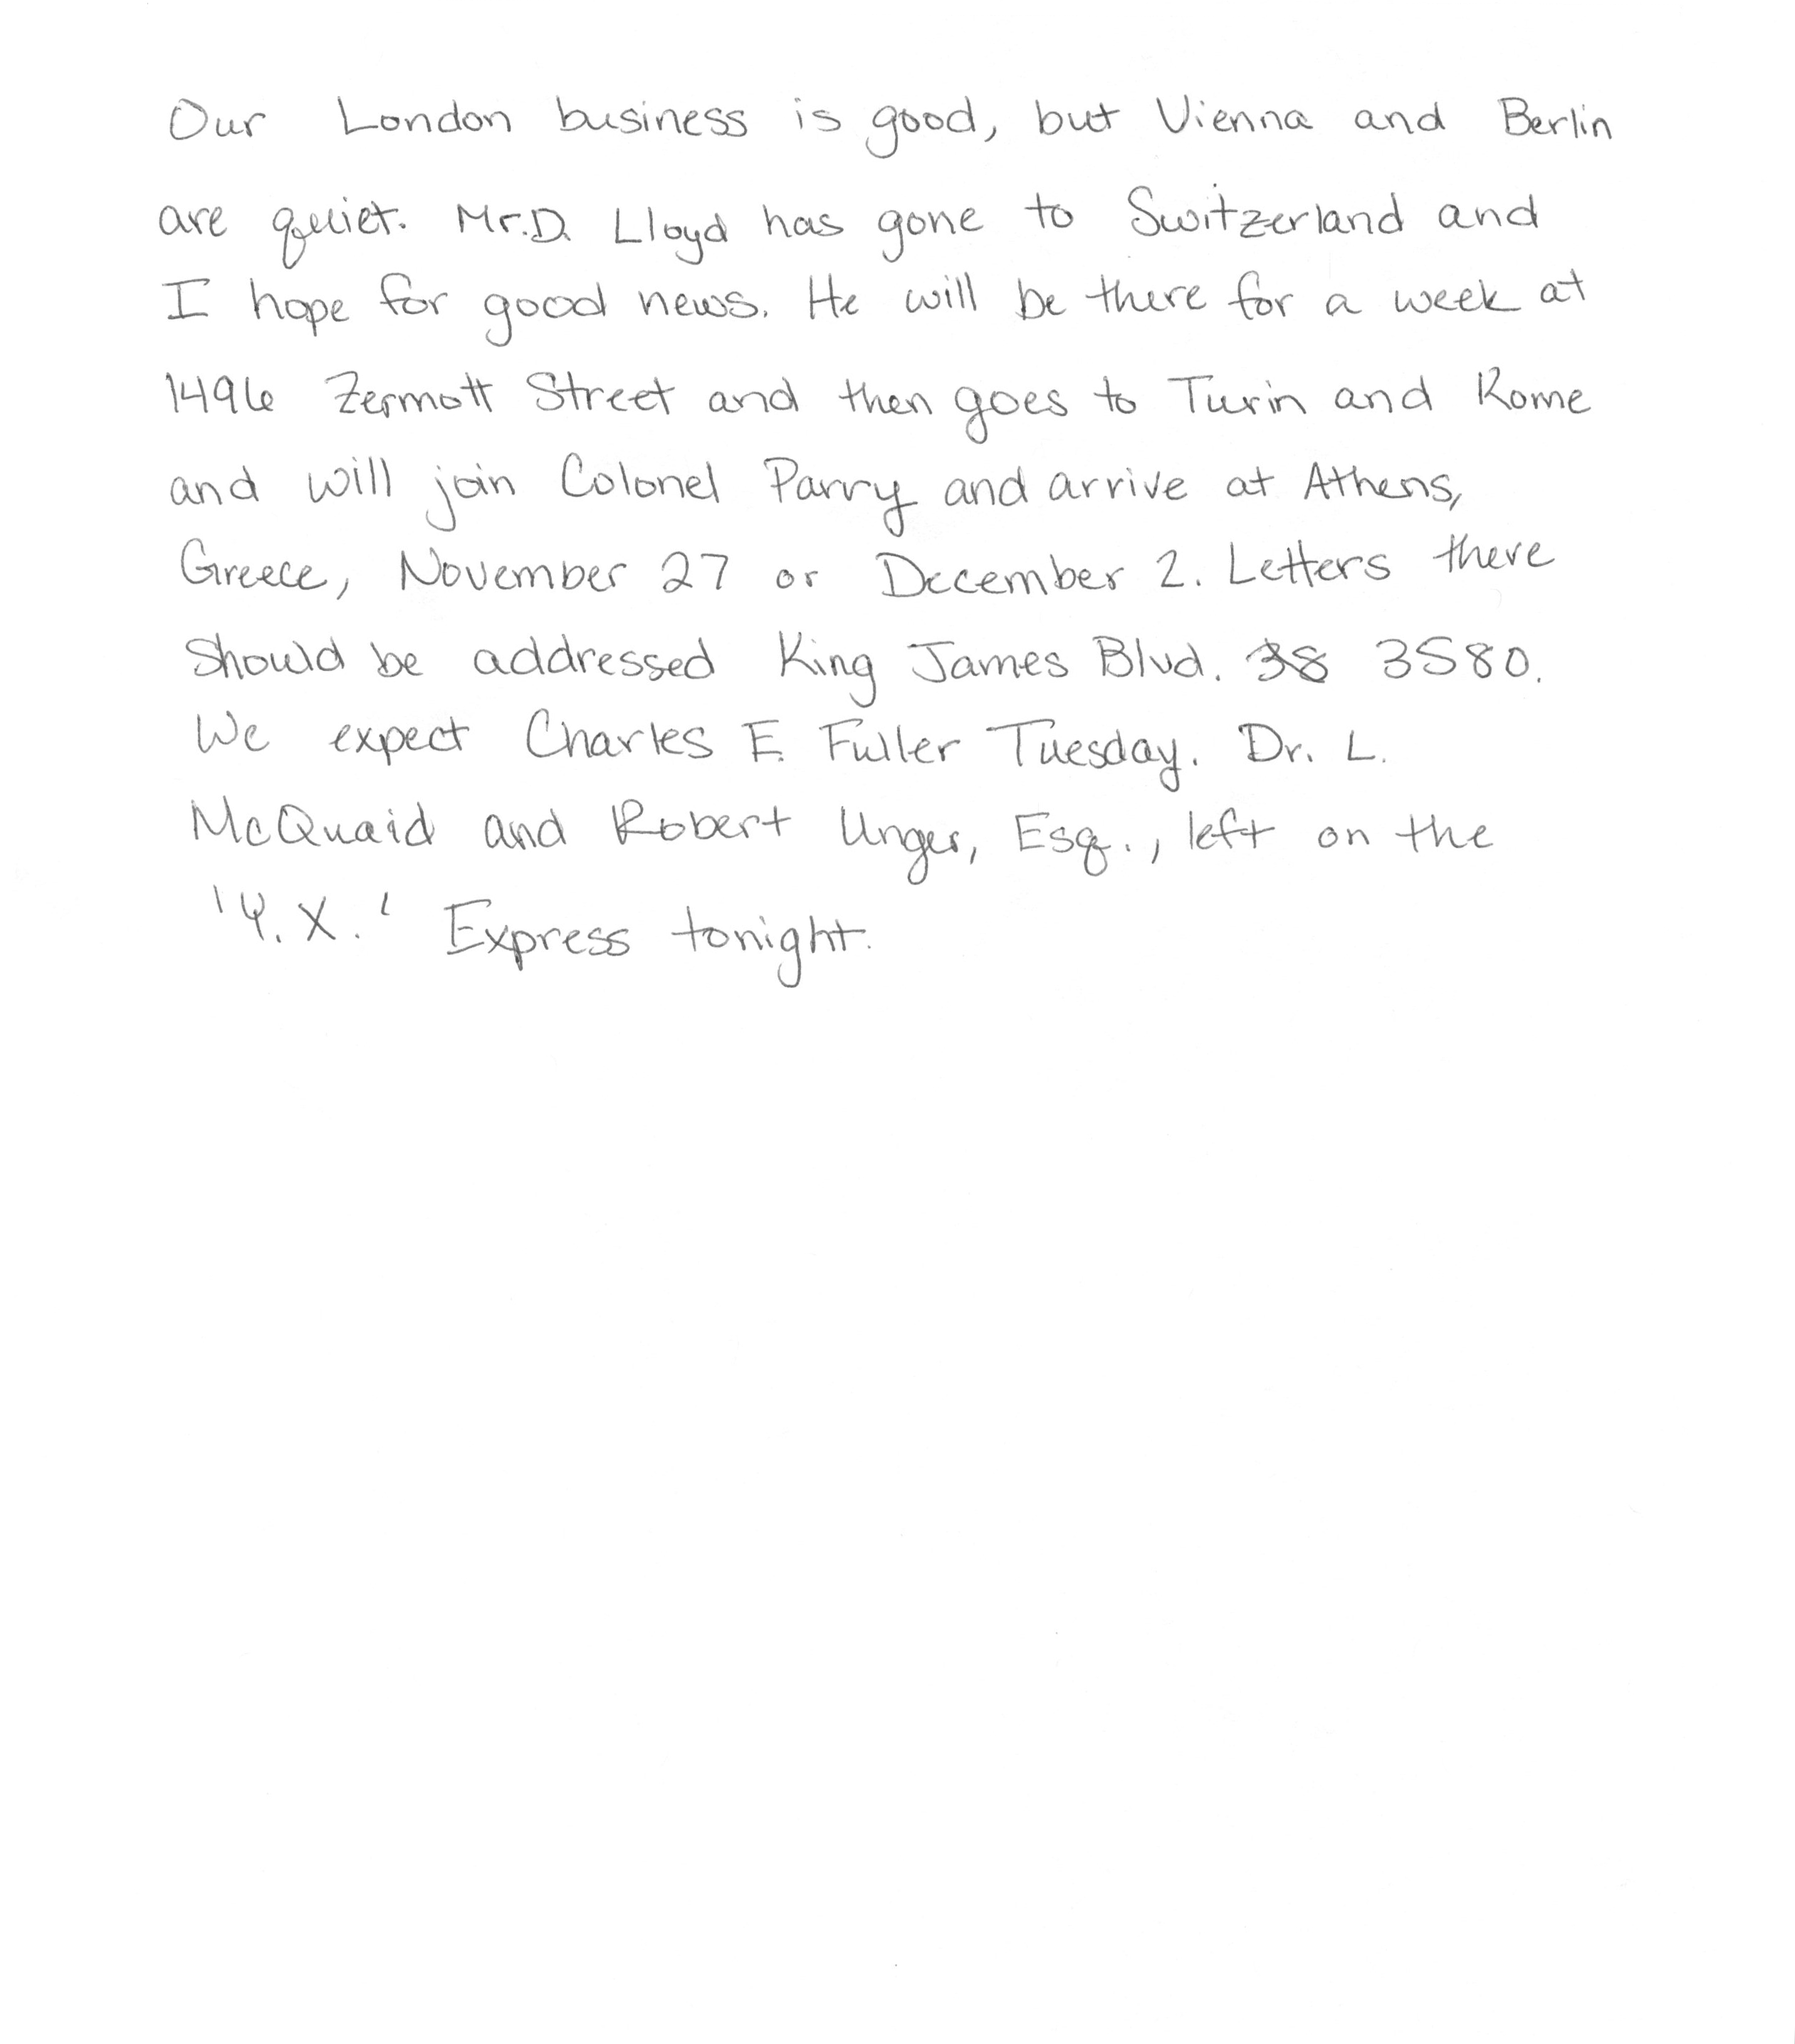 Our London business is good, but Vienna and Berlin
are quiet. Mr. D. Lloyd has gone to Switzerland and
I hope for good news. He will be there for a week at
1496 Zermott Street and then goes to Turin and Rome
and will join Colonel Parry and arrive at Athens,
Greece, November 27 or December 2. Letters there
should be addressed King James Blvd. 3580.
We expect Charles E. Fuller Tuesday. Dr. L.
McQuaid and Robert Unger, Esq., left on the
'Y.X.' Express tonight.